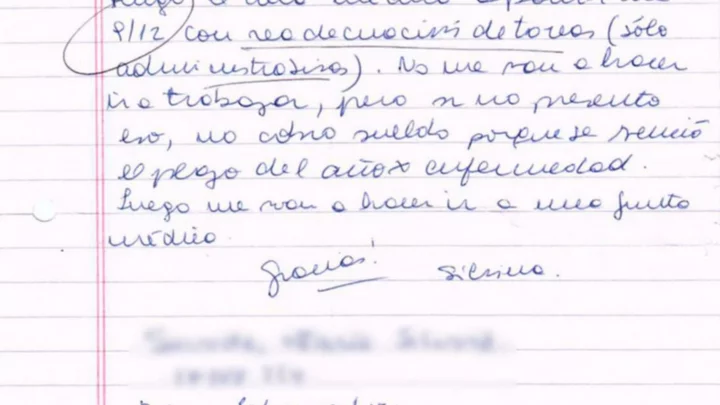 9/12 con readecuación de tareas (sólo
administrativas). No me van a hacer
ir a trabajar, pero si no presento
eso, no cobro sueldo porque se venció
el plazo del año x enfermedad.
Luego me van a hacer ir a una junta
médica.
Gracias! Silvina.